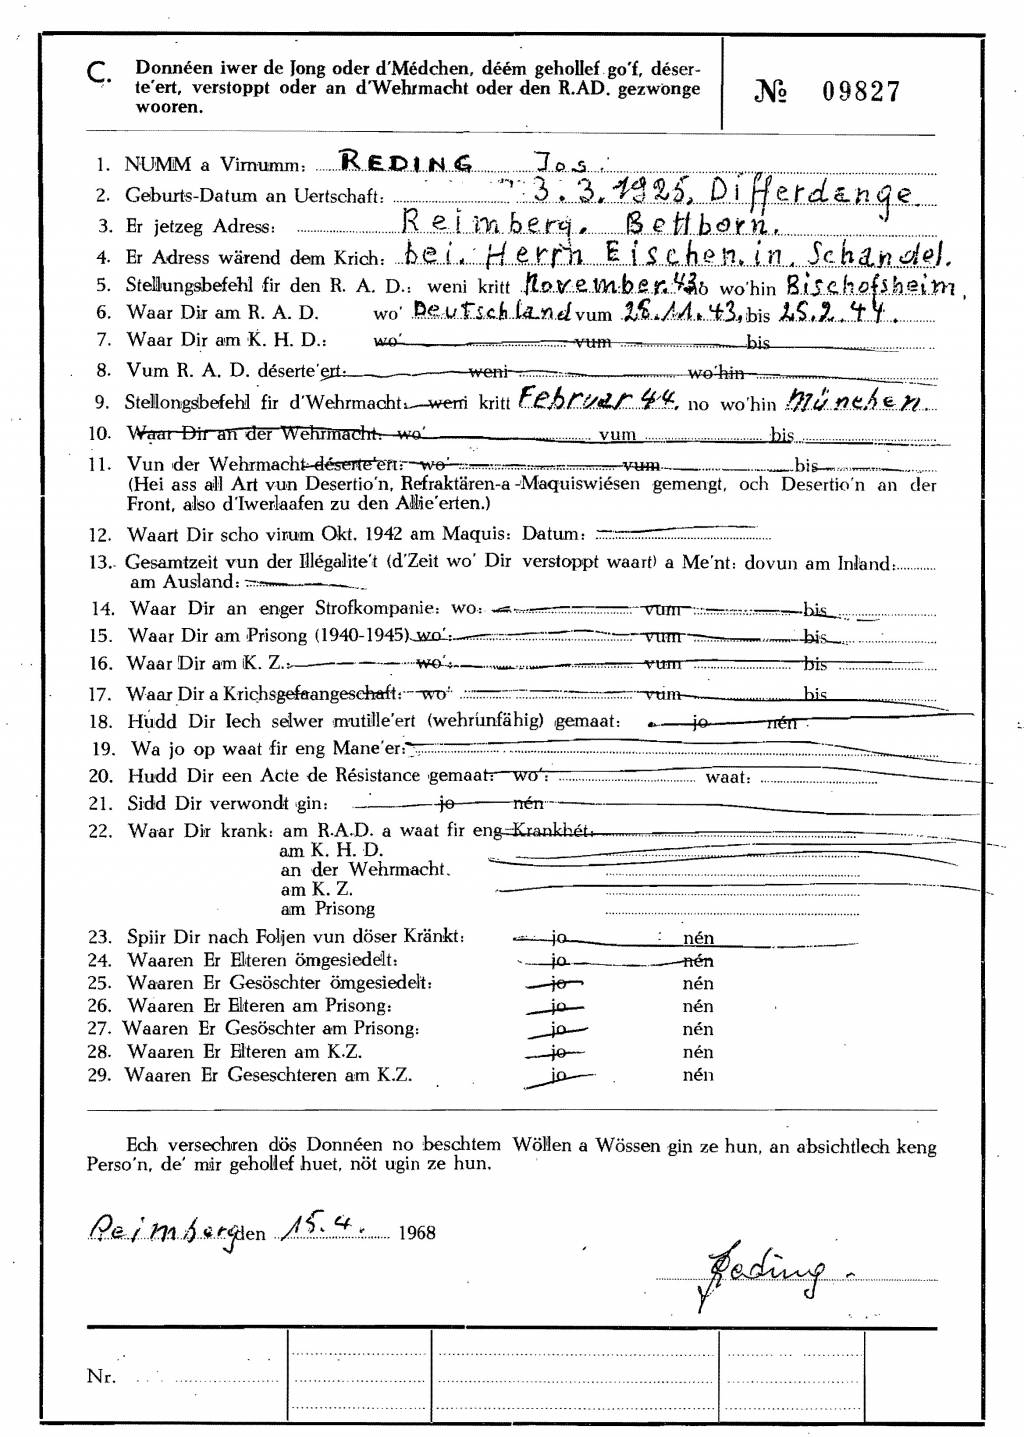 C. Donnéen iwer de Jong oder d'Médchen, déém gehollef go'f, déser-
te'ert, verstoppt oder an d'Wehrmacht oder den R.AD. gezwonge
wooren.
№ 09827
1. NUMM a Virnumm: REDING Jos.
2. Geburts-Datum an Uertschaft: 3.3.1925, Differdange.
3. Er jetzeg Adress: Reimberg. Bettborn.
4. Er Adress wärend dem Krich: bei. Herrn Eischen. in. Schandel.
5. Stellungsbefehl fir den R. A. D.: weni kritt November.43 no wo'hin Bischofsheim,
6. Waar Dir am R. A. D. wo' Deutschland vum 25.11.43. bis 25.2.44.
7. Waar Dir am K. H. D.: wo' vum bis
8. Vum R. A. D. déserte'ert: weni wo'hin
9. Stellongsbefehl fir d'Wehrmacht: weni kritt Februar 44. no wo'hin München.
10. Waar Dir an der Wehrmacht: wo' vum bis
11. Vun der Wehrmacht déserte'ert: wo' vum bis
(Hei ass all Art vun Desertio'n, Refraktären-a -Maquiswiésen gemengt, och Desertio'n an der
Front, also d'Iwerlaafen zu den Allie'erten.)
12. Waart Dir scho virum Okt. 1942 am Maquis: Datum:
13. Gesamtzeit vun der Illégalite't (d'Zeit wo' Dir verstoppt waart) a Me'nt: dovun am Inland:
am Ausland:
14. Waar Dir an enger Strofkompanie: wo: vum bis
15. Waar Dir am Prisong (1940-1945) wo': vum bis
16. Waar Dir am K. Z.: wo': vum bis
17. Waar Dir a Krichsgefaangeschaft: wo' vum bis
18. Hudd Dir Iech selwer mutille'ert (wehrunfähig) gemaat: jo nén
19. Wa jo op waat fir eng Mane'er:
20. Hudd Dir een Acte de Résistance gemaat: wo': waat:
21. Sidd Dir verwondt gin: jo nén
22. Waar Dir krank: am R.A.D. a waat fir eng Krankhét:
am K. H. D.
an der Wehrmacht.
am K. Z.
am Prisong
23. Spiir Dir nach Foljen vun döser Kränkt: jo nén
24. Waaren Er Elteren ömgesiedelt: jo nén
25. Waaren Er Gesöschter ömgesiedelt: jo nén
26. Waaren Er Elteren am Prisong: jo nén
27. Waaren Er Gesöschter am Prisong: jo nén
28. Waaren Er Elteren am K.Z. jo nén
29. Waaren Er Geseschteren am K.Z. jo nén
Ech versechren dös Donnéen no beschtem Wöllen a Wössen gin ze hun, an absichtlech keng
Perso'n, de' mir gehollef huet, nöt ugin ze hun.
Reimberg den 15.4. 1968
Reding
Nr.